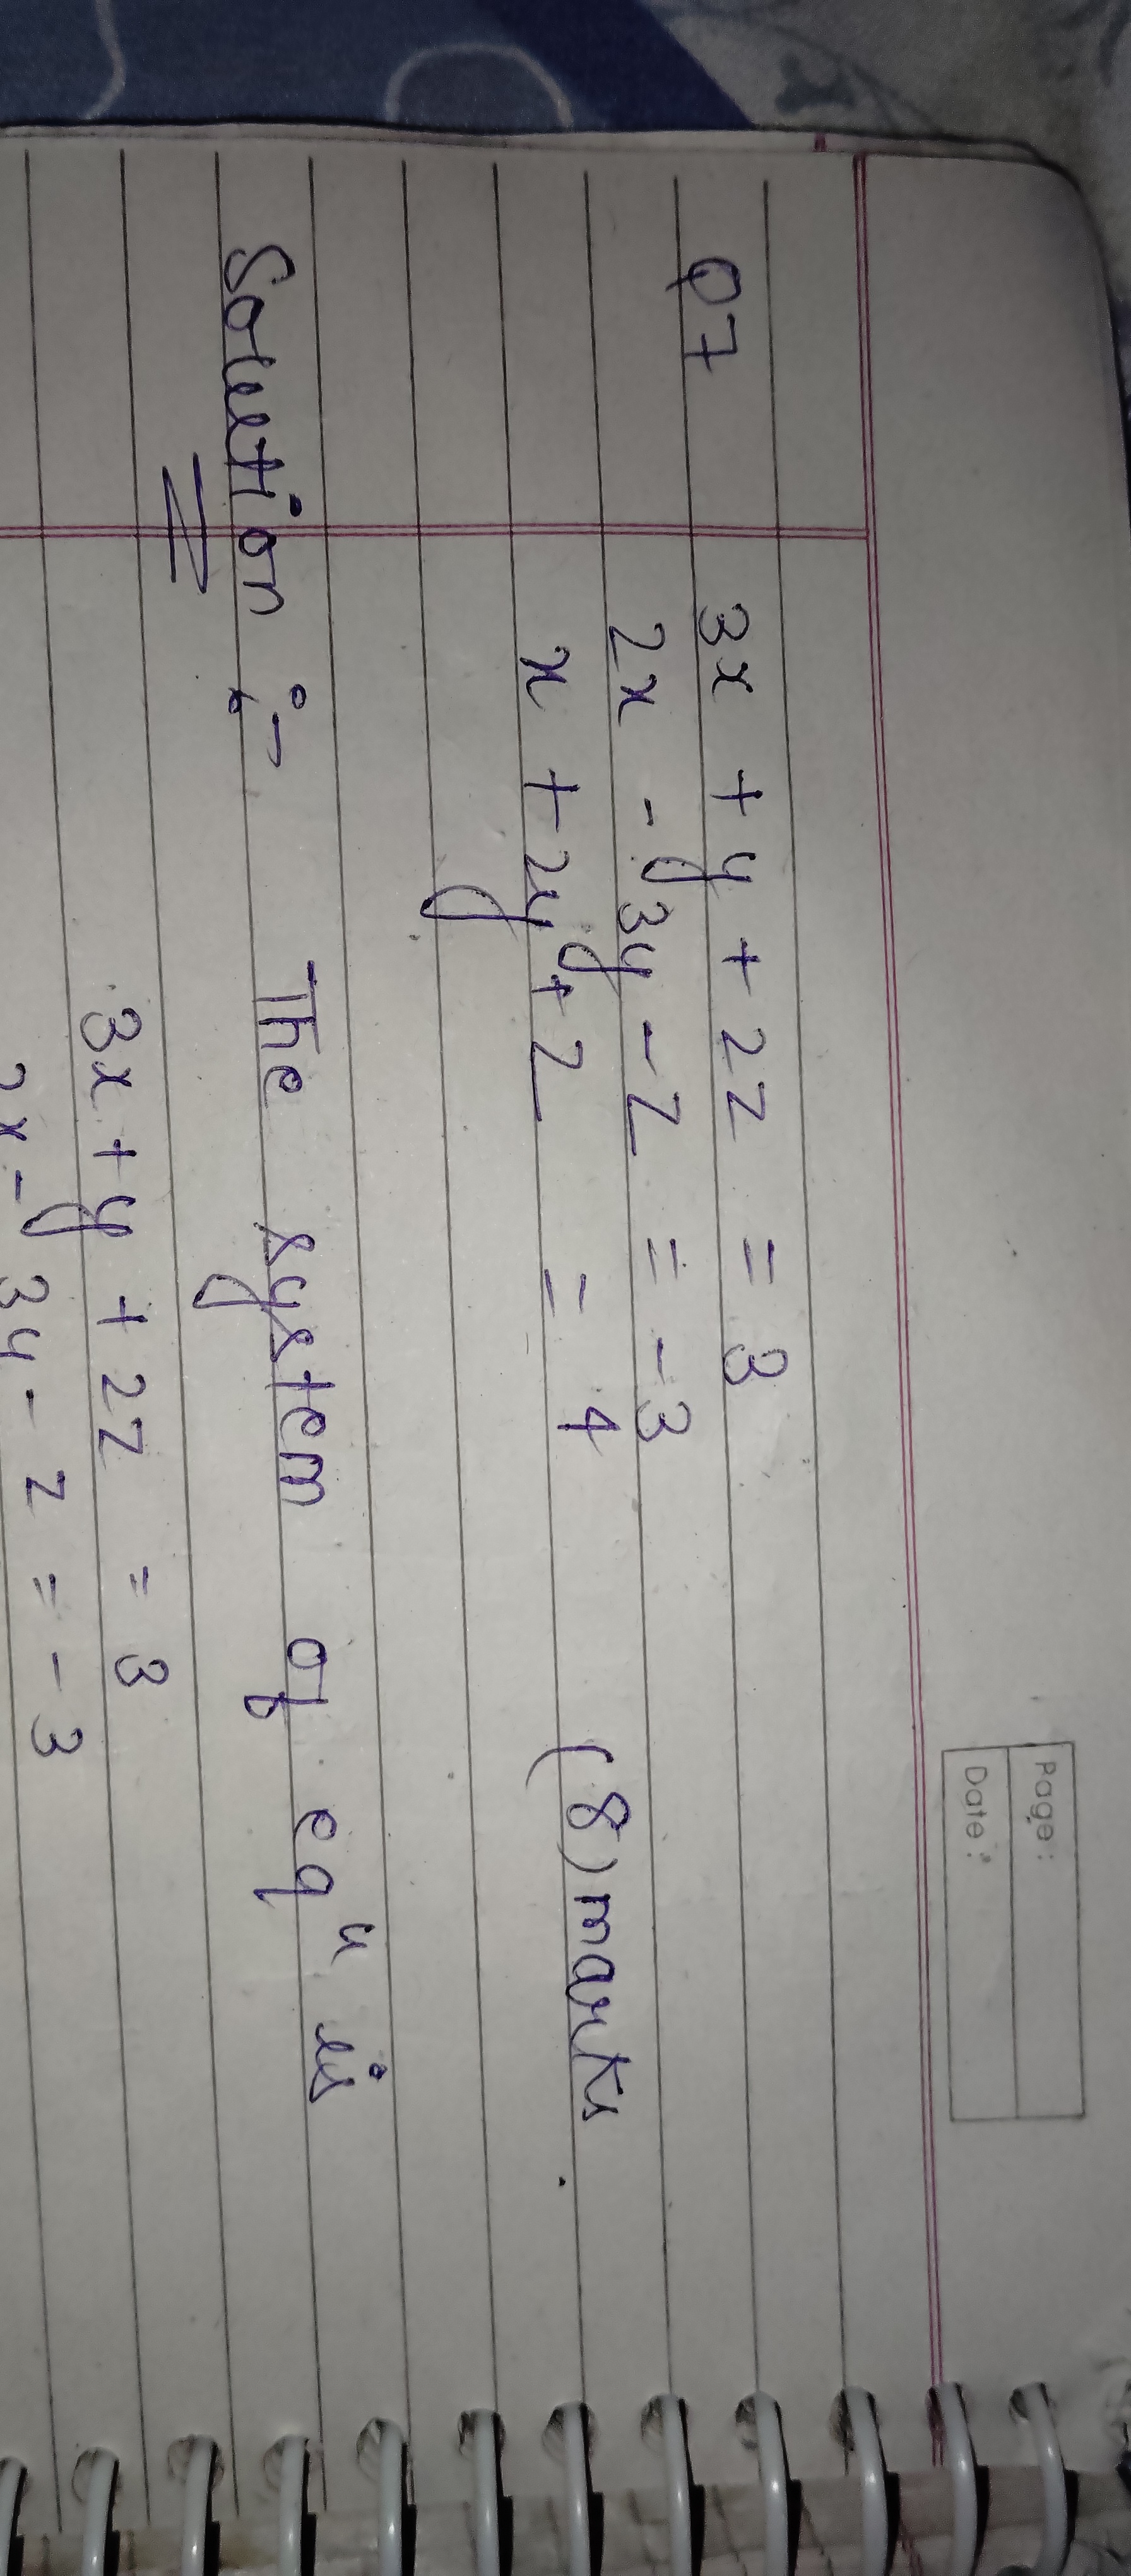 Page:
Date:
Q7 3x + y + 2z = 3
2x - 3y - z = -3
x + 2y + z = 4 (8) marks
Solution :- The system of eqⁿ is
3x + y + 2z = 3
2x - 3y - z = -3